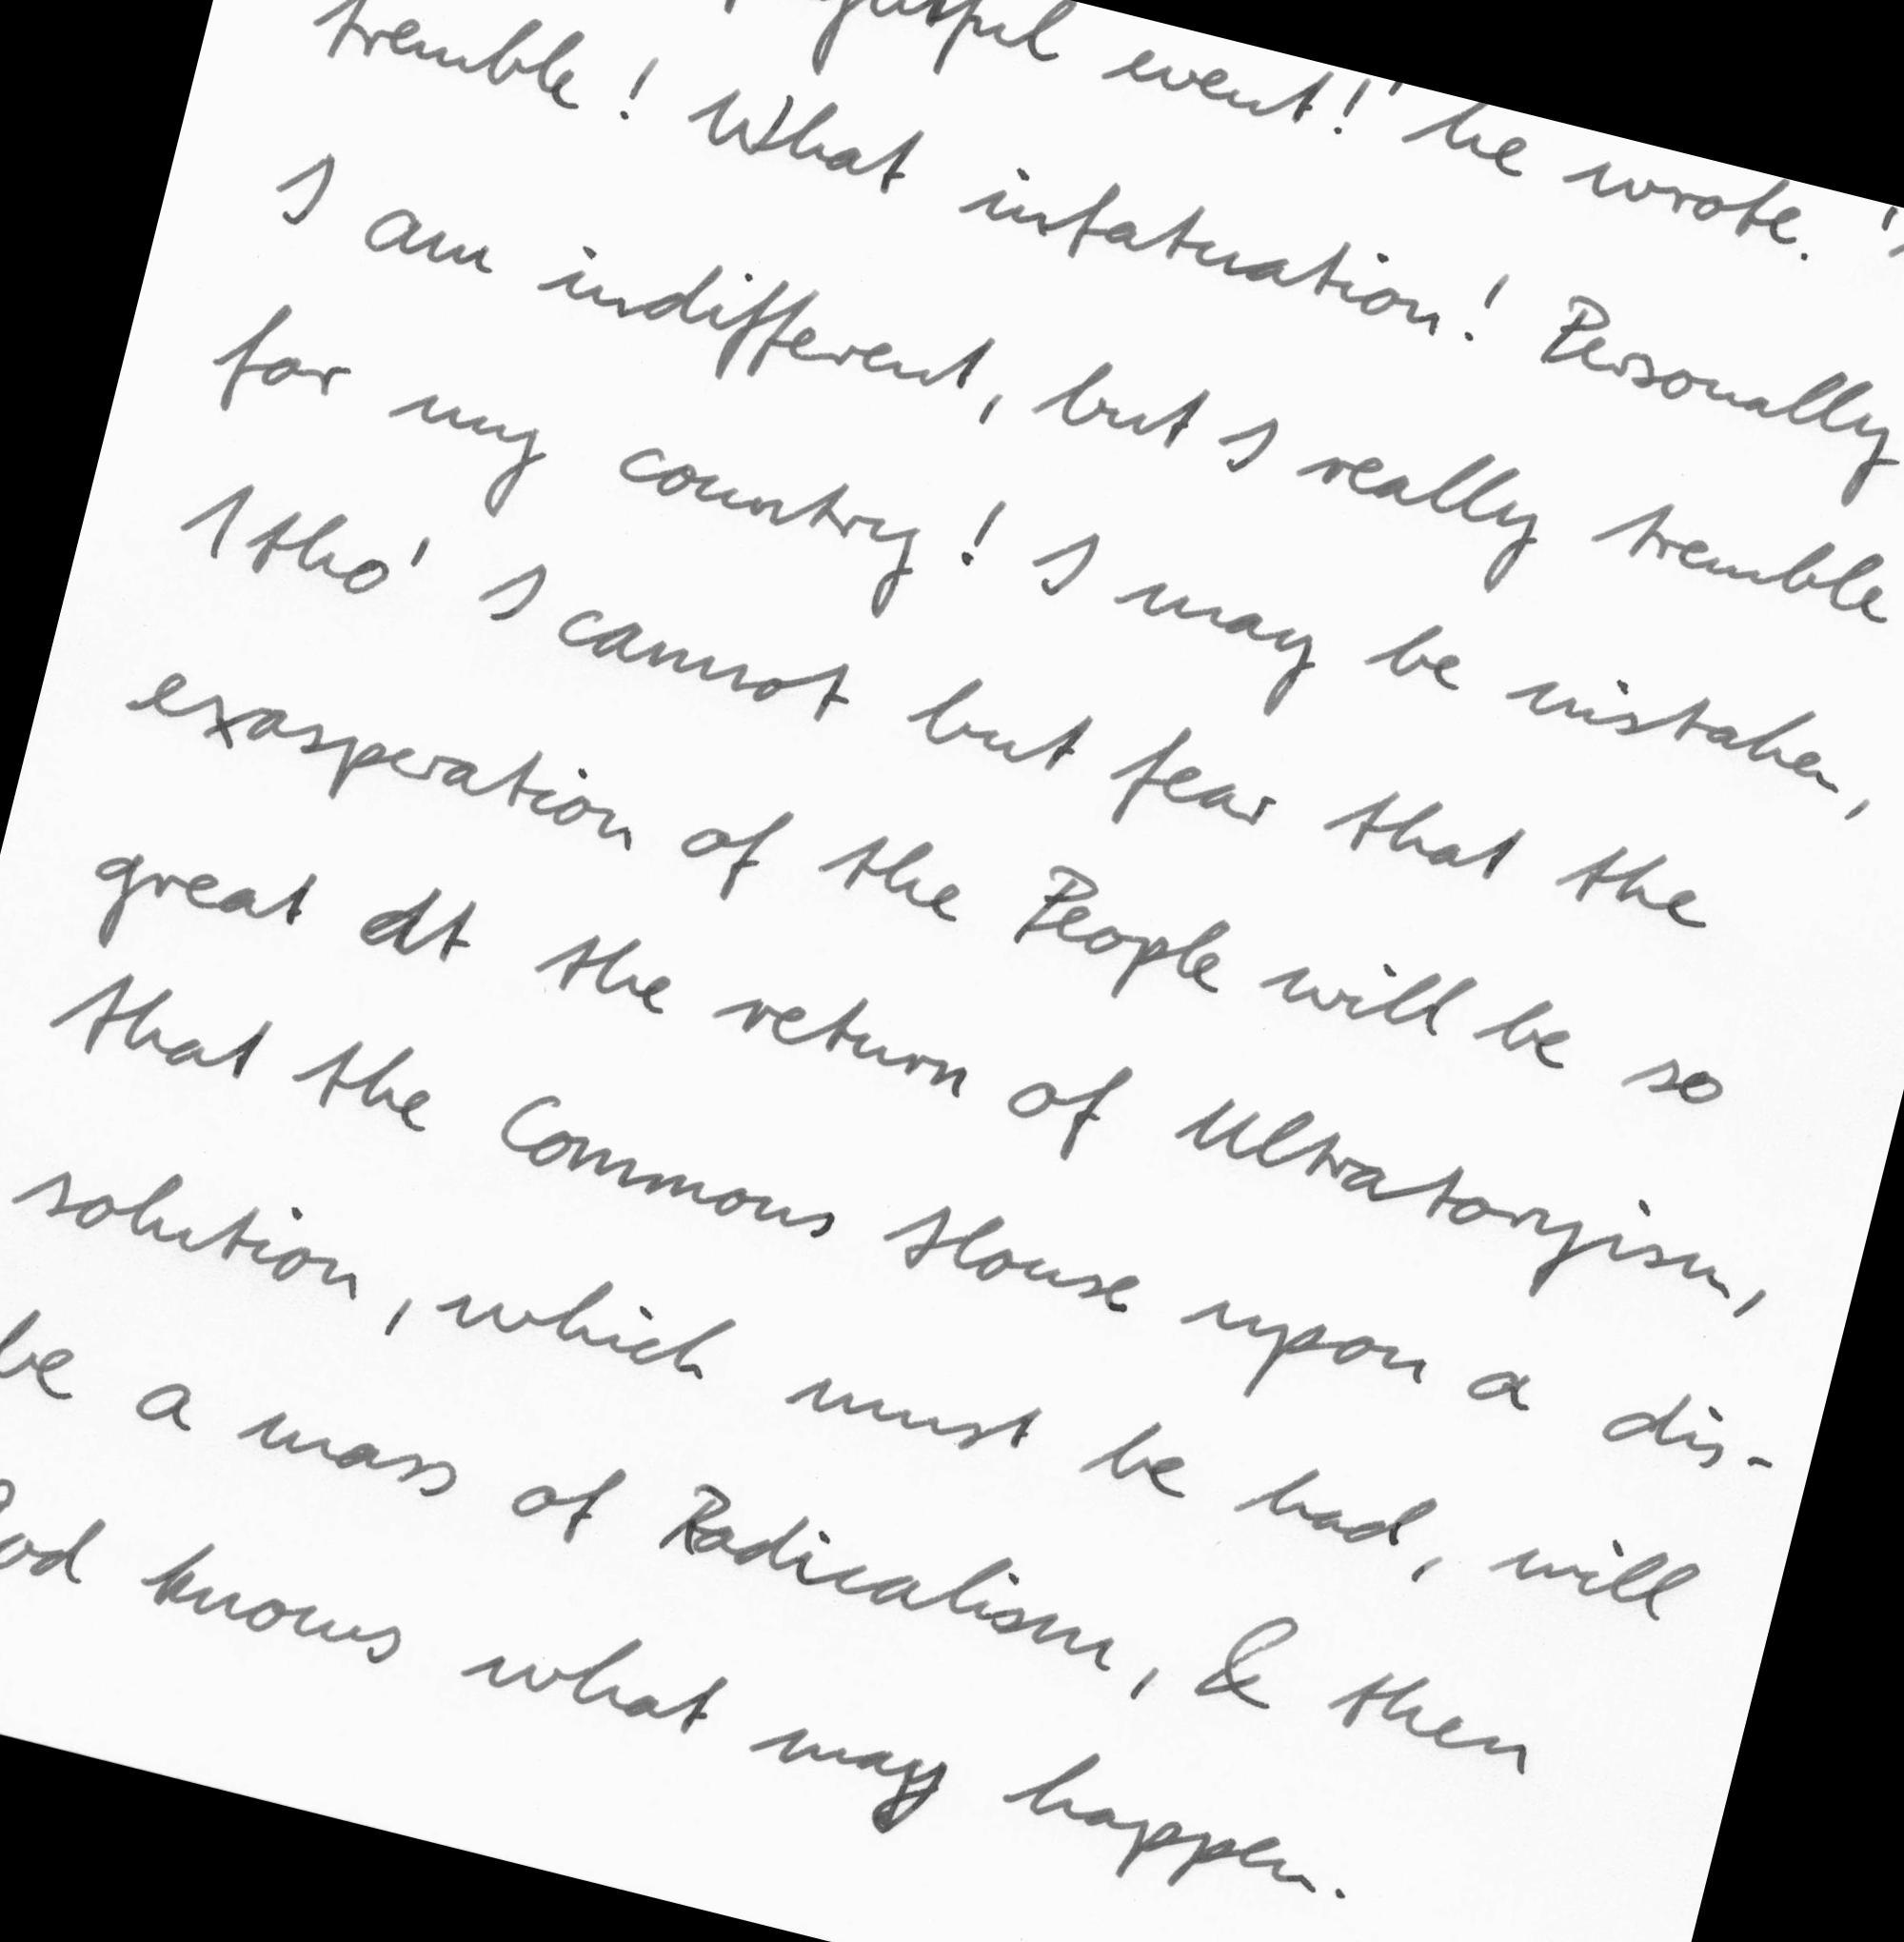 event!' he wrote.
tremble! What infatuation! Personally
I am indifferent, but I really tremble
for my country! I may be mistaken,
tho' I cannot but fear that the
exasperation of the People will be so
great at the return of Ultratoryism,
that the Commons House upon a dis-
solution, which must be had, will
be a mass of Radicalism, & then
God knows what may happen.